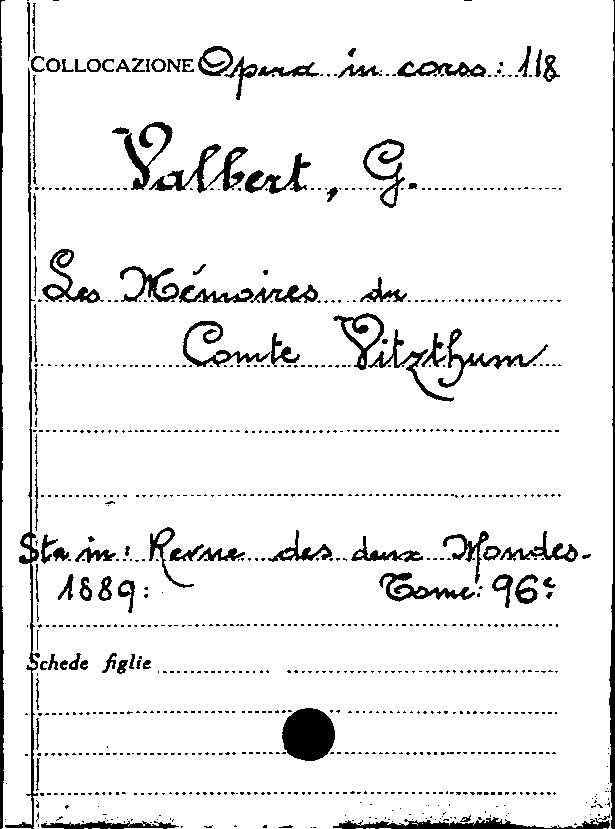 COLLOCAZIONE Opera in corso: 118
Valbert, G.
Les Mémoires du
Comte Vitzthum
Sta in: Revue des deux Mondes.
1889: Tome: 96e:
Schede figlie